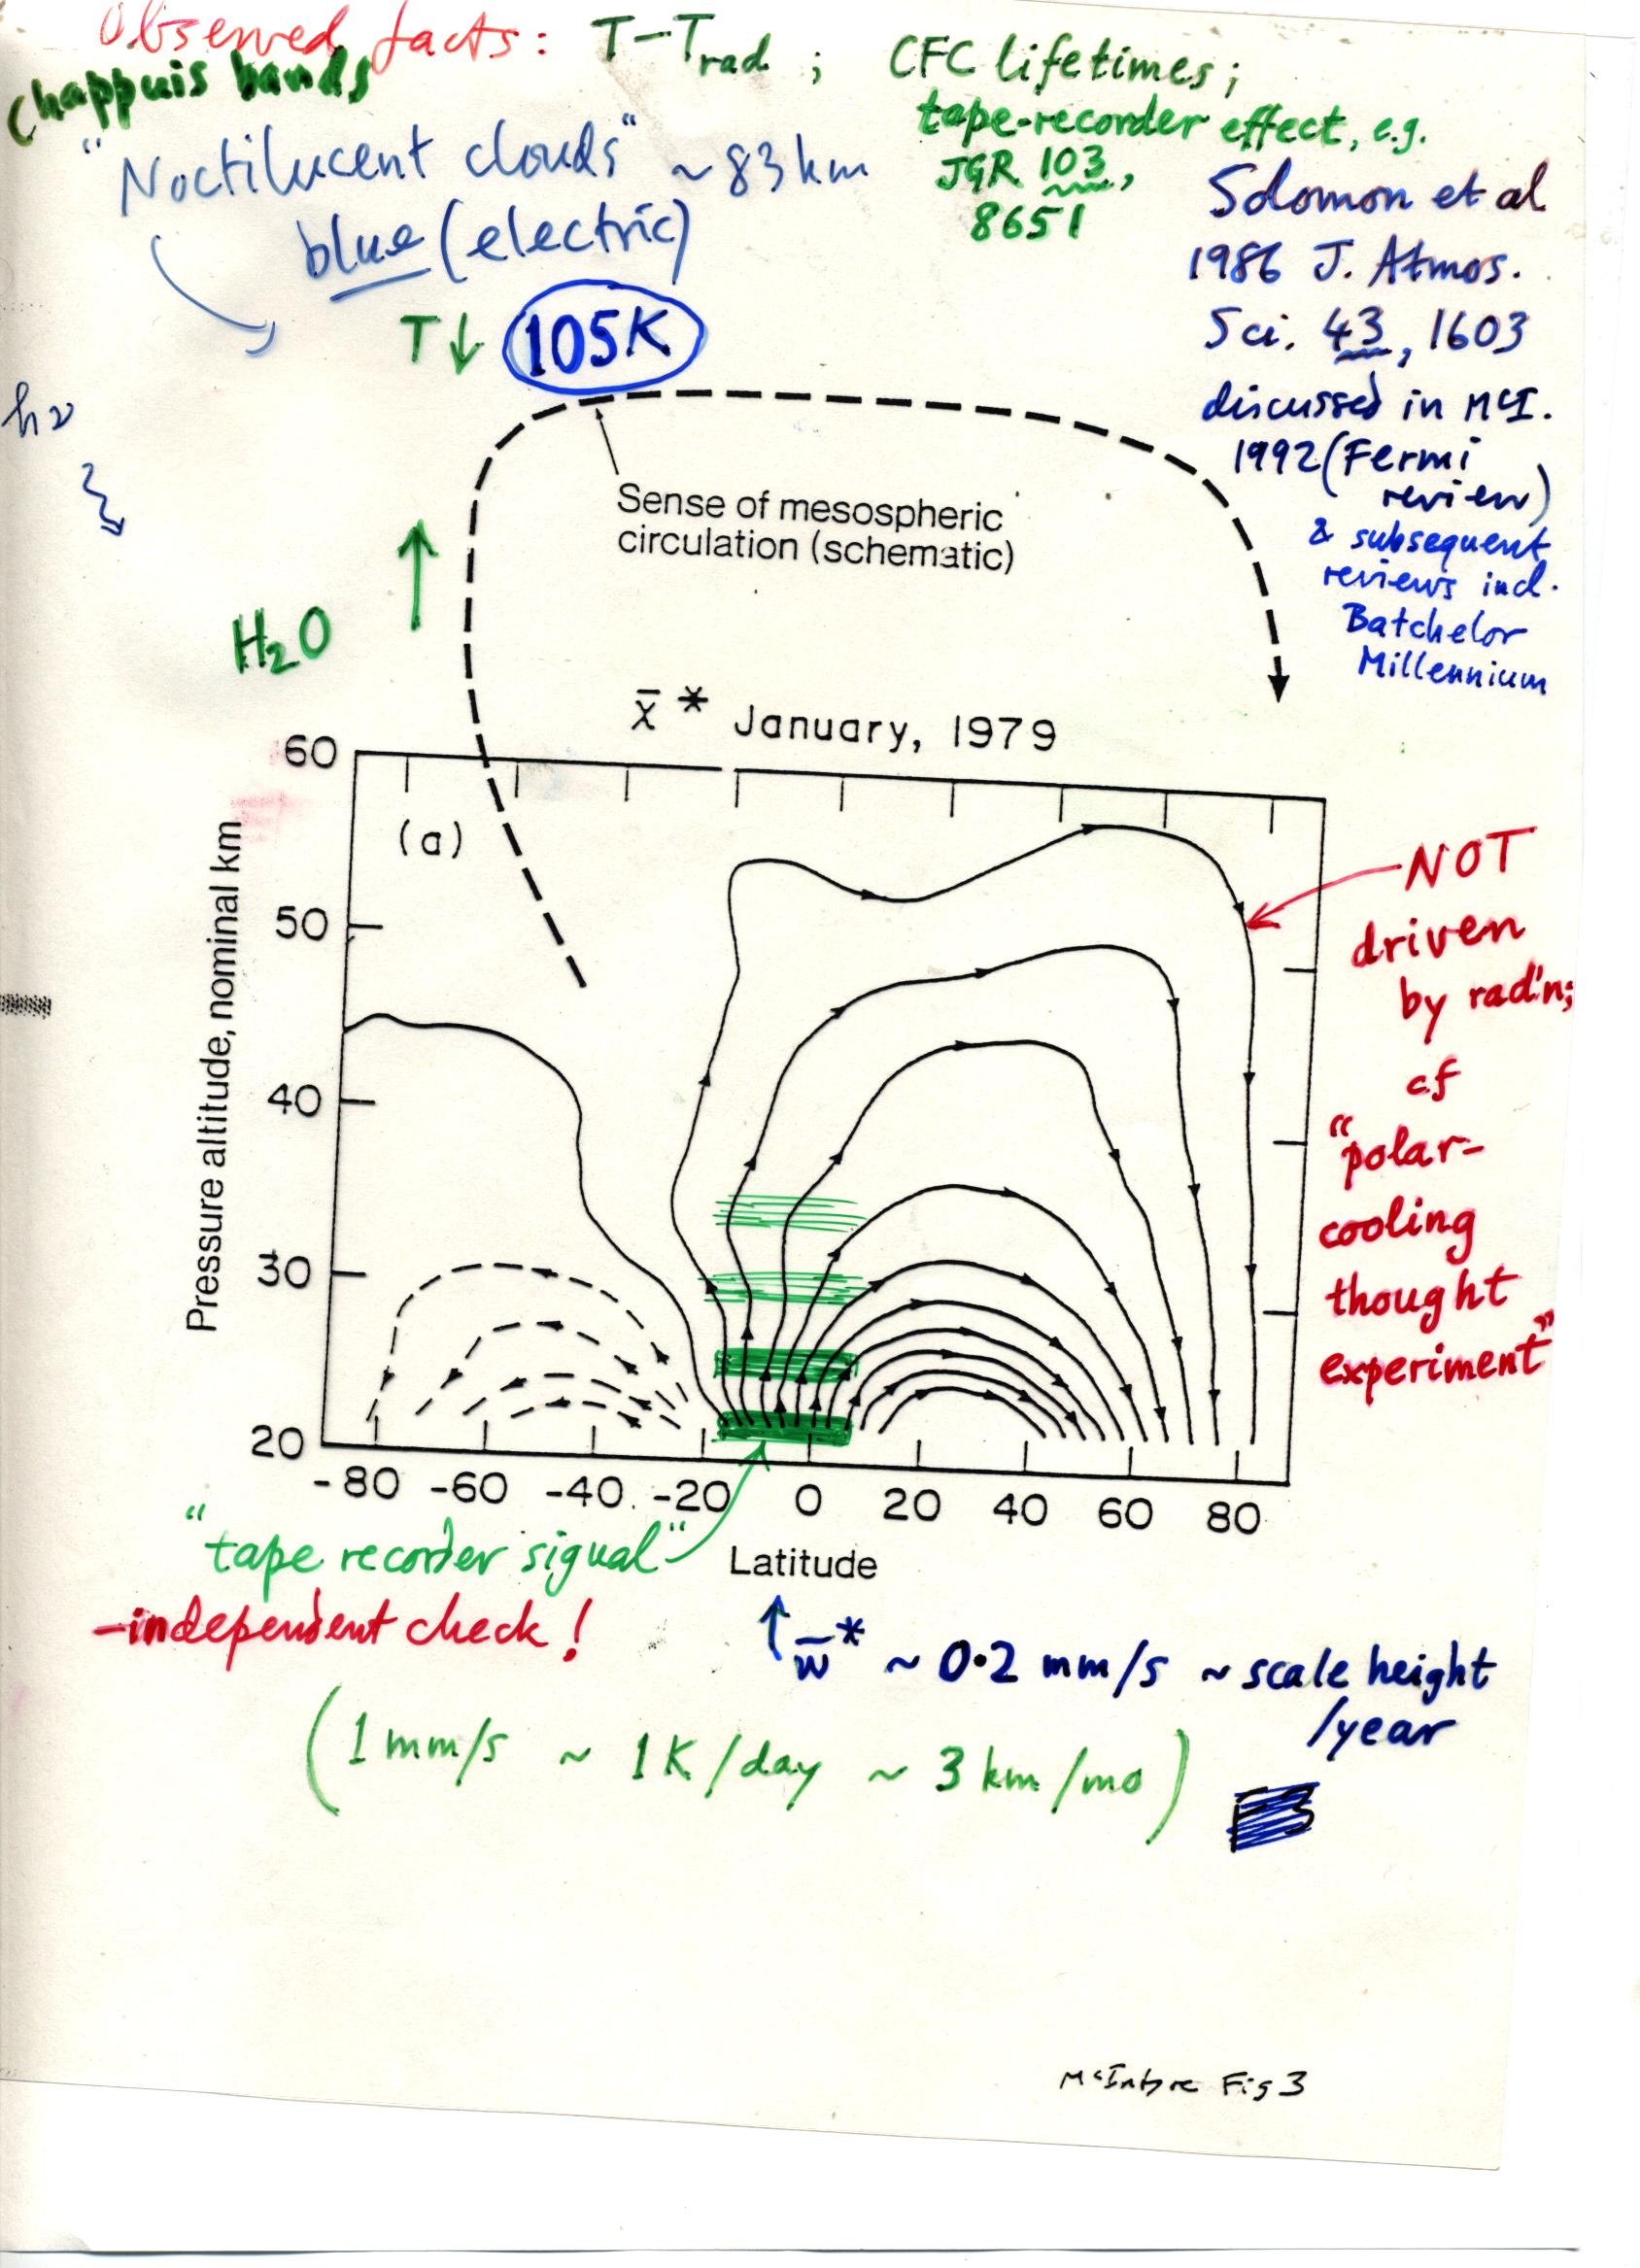 Observed facts: T-Trad ; CFC lifetimes;
Chappuis bands
tape-recorder effect, e.g.
JGR 103,
8651
"Noctilucent clouds" ~83km
blue (electric)
Solomon et al
1986 J. Atmos.
Sci. 43, 1603
discussed in McI.
1992 (Fermi
review)
& subsequent
reviews incl.
Batchelor
Millennium
T↓ 105K
hν
Sense of mesospheric
circulation (schematic)
↑
H₂O
χ̄* January, 1979
(a)
Pressure altitude, nominal km
60
50
40
30
20
-80 -60 -40 -20 0 20 40 60 80
Latitude
NOT
driven
by rad'n;
cf
"polar-
cooling
thought
experiment"
"tape recorder signal"
-independent check!
↑ w̄* ~ 0.2 mm/s ~ scale height
/year
(1 mm/s ~ 1K/day ~ 3 km/mo)
McIntyre Fig 3